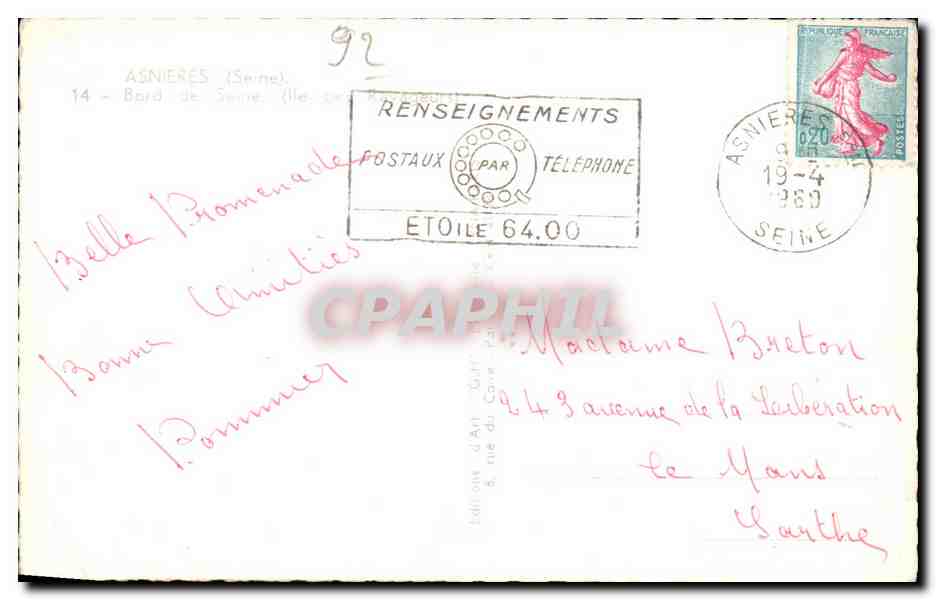 92
ASNIERES (Seine).
14 - Bord de Seine (Ile des Ravageurs)
RENSEIGNEMENTS
POSTAUX PAR TÉLÉPHONE
ETOILE 64.00
REPUBLIQUE FRANÇAISE
0,20
POSTES
ASNIERES
19-4
1960
SEINE
Belle Promenade
Bonne Amitiés
Pommier
CPAPHIL
Editions d'Art
8, rue du Caire
Madame Breton
243 avenue de la Lerbération
Le Mans
Sarthe